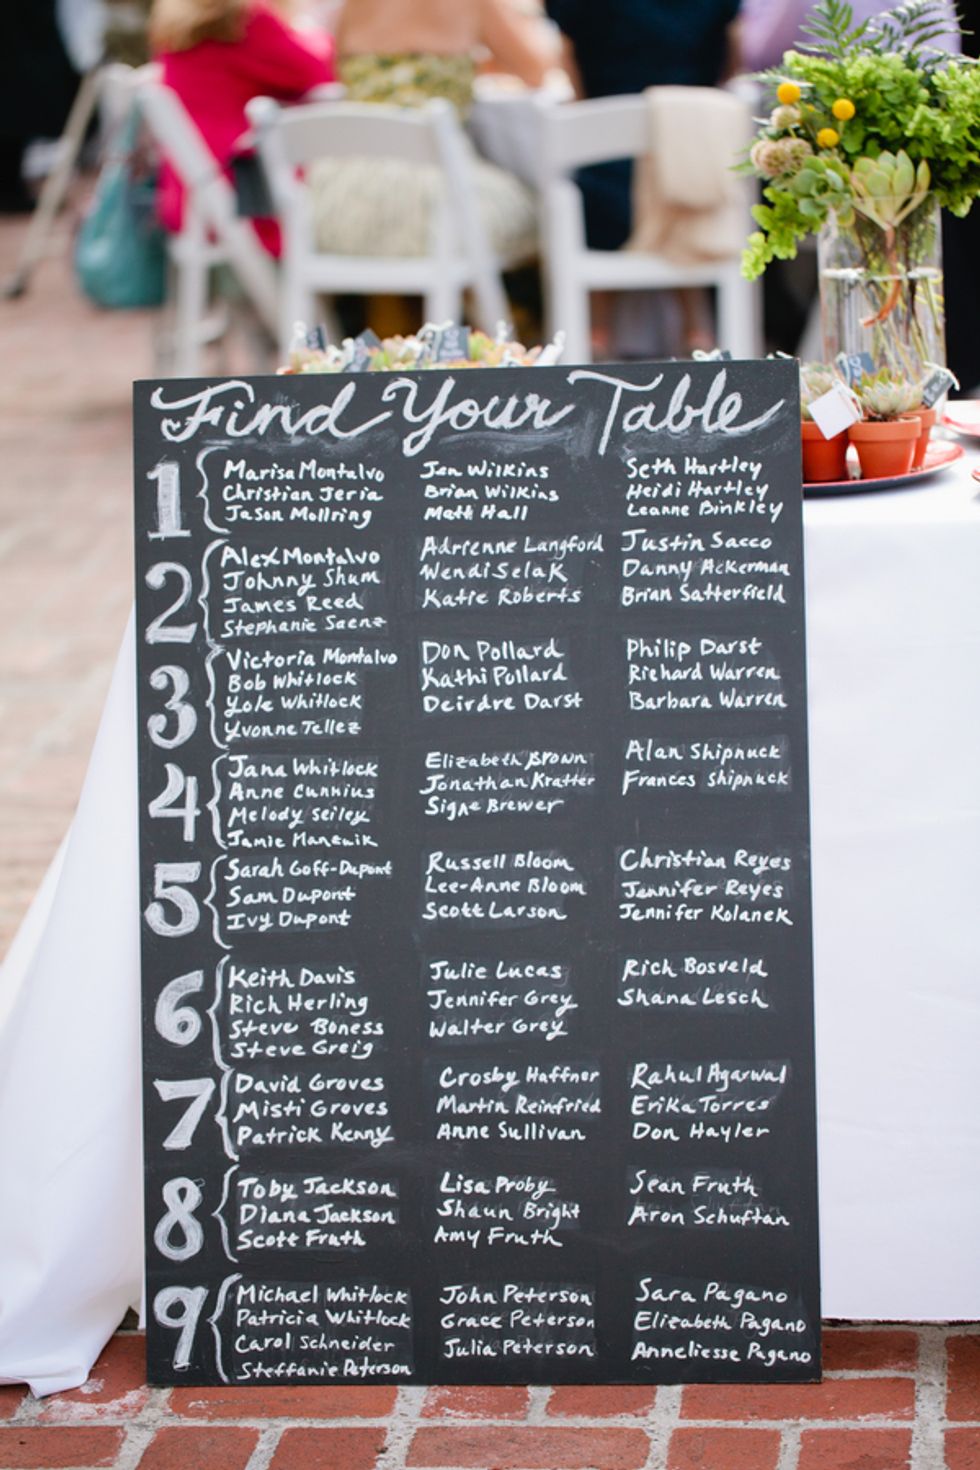 Find Your Table
1
Marisa Montalvo Jen Wilkins Seth Hartley
Christian Jeria Brian Wilkins Heidi Hartley
Jason Mollring Matt Hall Leanne Binkley
2
Alex Montalvo Adrienne Langford Justin Sacco
Johnny Shum Wendi Selak Danny Ackerman
James Reed Katie Roberts Brian Satterfield
Stephanie Saenz
3
Victoria Montalvo Don Pollard Philip Darst
Bob Whitlock Kathi Pollard Richard Warren
Yole Whitlock Deirdre Darst Barbara Warren
Yvonne Tellez
4
Jana Whitlock Elizabeth Brown Alan Shipnuck
Anne Cunnius Jonathan Kratter Frances Shipnuck
Melody Seiley Signe Brewer
Jamie
5
Sarah Goff-Dupont Russell Bloom Christian Reyes
Sam Dupont Lee-Anne Bloom Jennifer Reyes
Ivy Dupont Scott Larson Jennifer Kolanek
6
Keith Davis Julie Lucas Rich Bosveld
Rich Herling Jennifer Grey Shana Lesch
Steve Boness Walter Grey
Steve Greig
7
David Groves Crosby Haffner Rahul Agarwal
Misti Groves Martin Reinfried Erika Torres
Patrick Kenny Anne Sullivan Don Hayler
8
Toby Jackson Lisa Proby Sean Fruth
Diana Jackson Shaun Bright Aron Schuftan
Scott Fruth Amy Fruth
9
Michael Whitlock John Peterson Sara Pagano
Patricia Whitlock Grace Peterson Elizabeth Pagano
Carol Schneider Julia Peterson Anneliesse Pagano
Steffanie Peterson